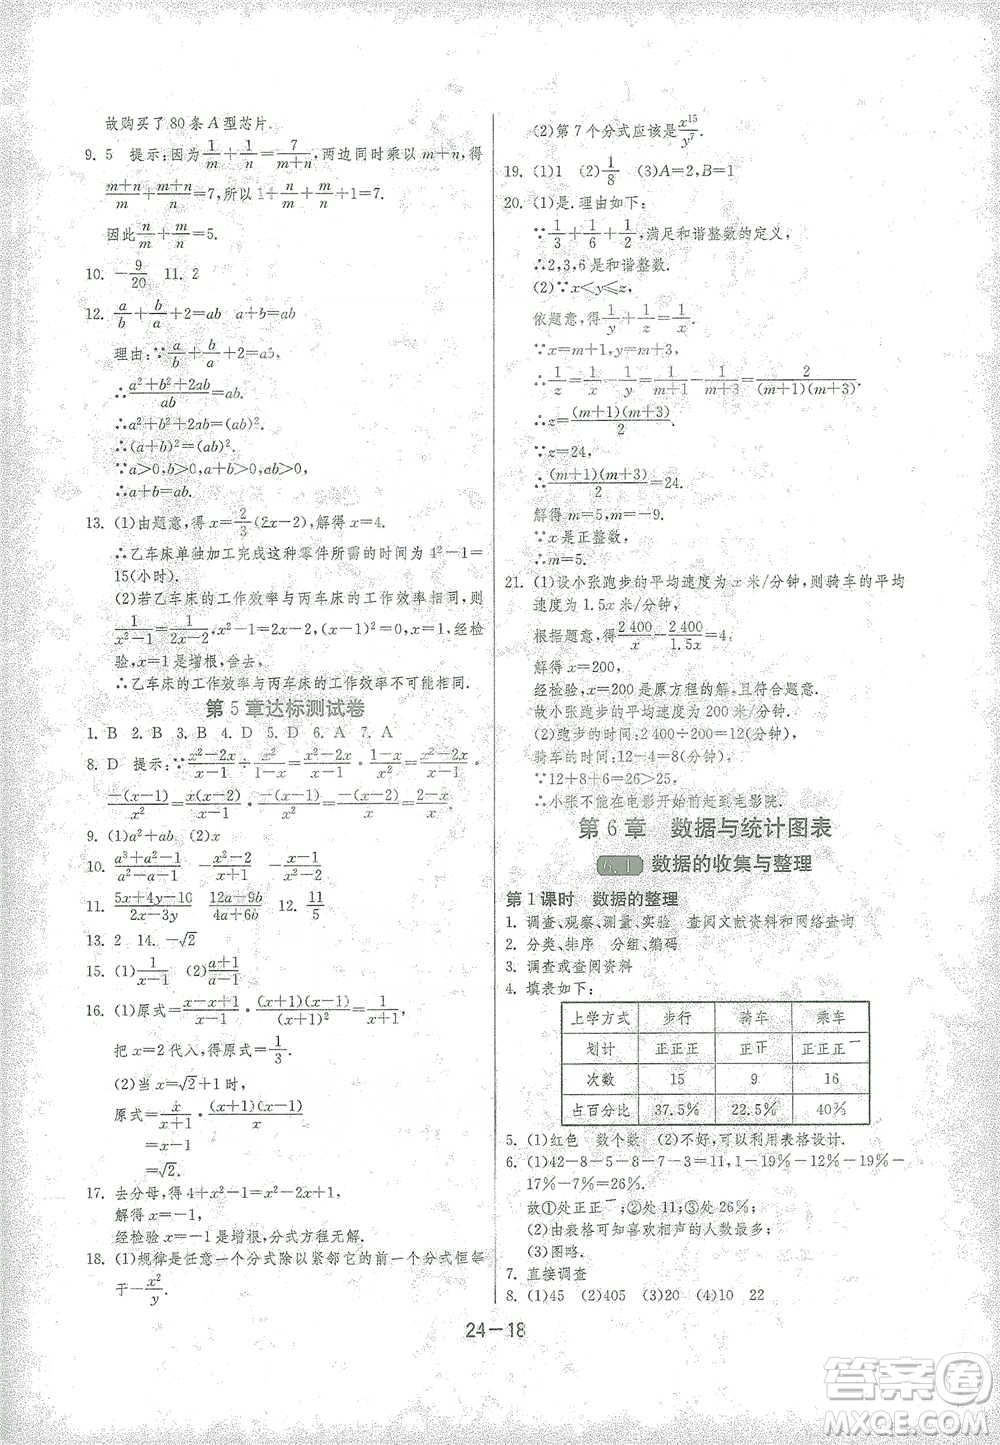 故购买了 80 条 A 型芯片.
9. 5 提示:因为1/m+1/n=7/(m+n),两边同时乘以 m+n,得
(m+n)/m+(m+n)/n=7,所以 1+n/m+m/n+1=7.
因此n/m+m/n=5.
10. −9/20 11. 2
12. a/b+b/a+2=ab a+b=ab
理由:∵a/b+b/a+2=ab,
∴(a²+b²+2ab)/ab=ab.
∴a²+b²+2ab=a²b².
∴(a+b)²=(ab)².
∵a>0,b>0,a+b>0,ab>0,
∴a+b=ab.
13. (1)由题意,得 x=2/3(2x−2),解得 x=4.
∴乙车床单独加工完成这种零件所需的时间为 4²−1=
15(小时).
(2)若乙车床的工作效率与丙车床的工作效率相同,则
1/(x²−1)=1/(2x−2),x²−1=2x−2,(x−1)²=0,x=1,经检
验,x=1是增根,舍去,
∴乙车床的工作效率与丙车床的工作效率不可能相同.
第 5 章达标测试卷
1. B 2. B 3. B 4. D 5. D 6. A 7. A
8. D 提示:∵(x²−2x)/(x−1)÷x²/(1−x)=(x²−2x)/(x−1)·(1−x)/x²=(x²−2x)/(x−1)·
−(x−1)/x²=x(x−2)/(x−1)·−(x−1)/x²=−(x−2)/x=(2−x)/x.
9. (1)a²+ab (2)x
10. (a³+a²−1)/(a²−a+1) −(x²−x)/(x²−2)
11. (5x+4y−10)/(2x−3y) (12a+9b)/(4a−6b) 12. 11/5
13. 2 14. −√2
15. (1)1/(x−1) (2)(a+1)/(a−1)
16. (1)原式=(x−x+1)/(x−1)·(x+1)(x−1)/(x+1)²=1/(x+1),
把 x=2 代入,得原式=1/3.
(2)当 x=√2+1时,
原式=x/(x+1)·(x+1)(x−1)/x
=x−1
=√2.
17. 去分母,得 4+x²−1=x²−2x+1,
解得 x=−1,
经检验 x=−1是增根,分式方程无解.
18. (1)规律是任意一个分式除以紧邻它的前一个分式恒等
于−x²/y.
(2)第 7 个分式应该是x¹⁵/y⁷.
19. (1)1 (2)1/8 (3)A=2,B=1
20. (1)是.理由如下:
∵1/3+1/6=1/2,满足和谐整数的定义,
∴2,3,6是和谐整数.
(2)∵x<y≤z,
依题意,得1/y+1/z=1/x.
∵x=m+1,y=m+3,
∴1/z=1/x−1/y=1/(m+1)−1/(m+3)=2/(m+1)(m+3).
∴z=(m+1)(m+3)/2.
∵z=24,
∴(m+1)(m+3)/2=24.
解得 m=5,m=−9.
∵x是正整数,
∴m=5.
21. (1)设小张跑步的平均速度为 x 米/分钟,则骑车的平均
速度为 1.5x 米/分钟,
根据题意,得2 400/x−2 400/1.5x=4.
解得 x=200,
经检验,x=200是原方程的解,且符合题意.
故小张跑步的平均速度为 200 米/分钟.
(2)跑步的时间:2 400÷200=12(分钟),
骑车的时间:12−4=8(分钟),
∵12+8+6=26>25,
∴小张不能在电影开始前赶到电影院.
第 6 章 数据与统计图表
6.1 数据的收集与整理
第 1 课时 数据的整理
1. 调查、观察、测量、实验 查阅文献资料和网络查询
2. 分类、排序 分组、编码
3. 调查或查阅资料
4. 填表如下:
上学方式 步行 骑车 乘车
划计 正正正 正正 正正正一
次数 15 9 16
占百分比 37.5% 22.5% 40%
5. (1)红色 数个数 (2)不好,可以利用表格设计.
6. (1)42−8−5−15−3=11,1−19%−12%−36%−
17%−7%=26%.
故①处正正一;②处 11;③处 26%;
(2)由表格可知喜欢相声的人数最多;
(3)图略.
7. 直接调查
8. (1)45 (2)405 (3)20 (4)10 22
24−18
答案圈
MXQE.COM